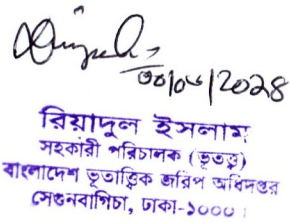 ৩০/০৬/২০২৪
রিয়াদুল ইসলাম
সহকারী পরিচালক (ভূতত্ত্ব)
বাংলাদেশ ভূতাত্ত্বিক জরিপ অধিদপ্তর
সেগুনবাগিচা, ঢাকা-১০০০।